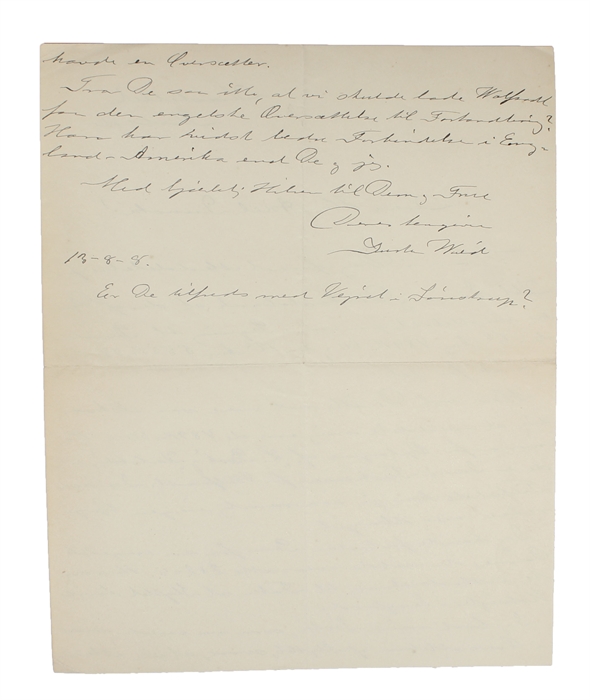 havde en Oversætter.
Tror De saa ikke, at vi skulde lade
for den engelske Oversættelse til Forhandling?
Han har vidst bedre Forbindelse i Eng-
land – Amerika end De og jeg.
Med hjertelig Hilsen til Dem og Frue
Deres hengivne
Gustav Wied
13-8-8.
Er De tilfreds med Vejret i Lønstrup?